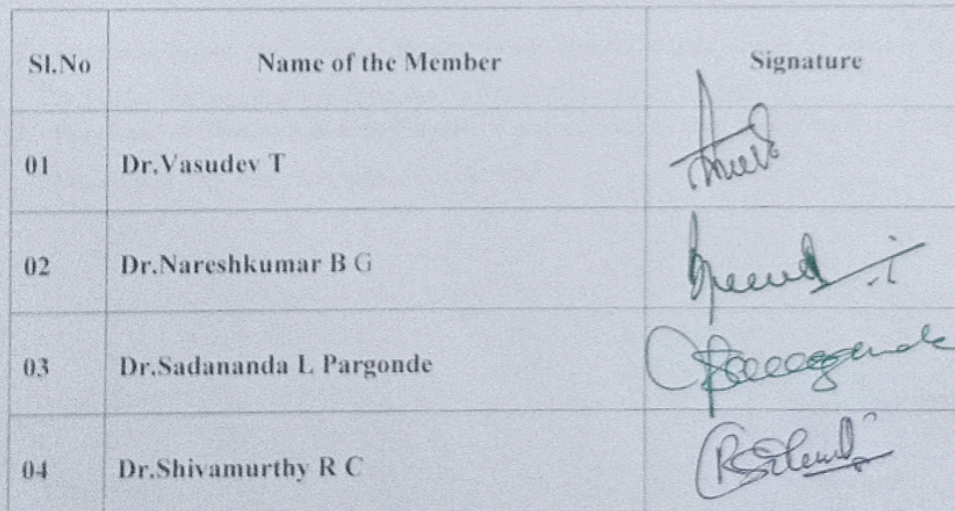 Sl.No Name of the Member Signature
01 Dr.Vasudev T
02 Dr.Nareshkumar B G
03 Dr.Sadananda L Pargonde
04 Dr.Shivamurthy R C